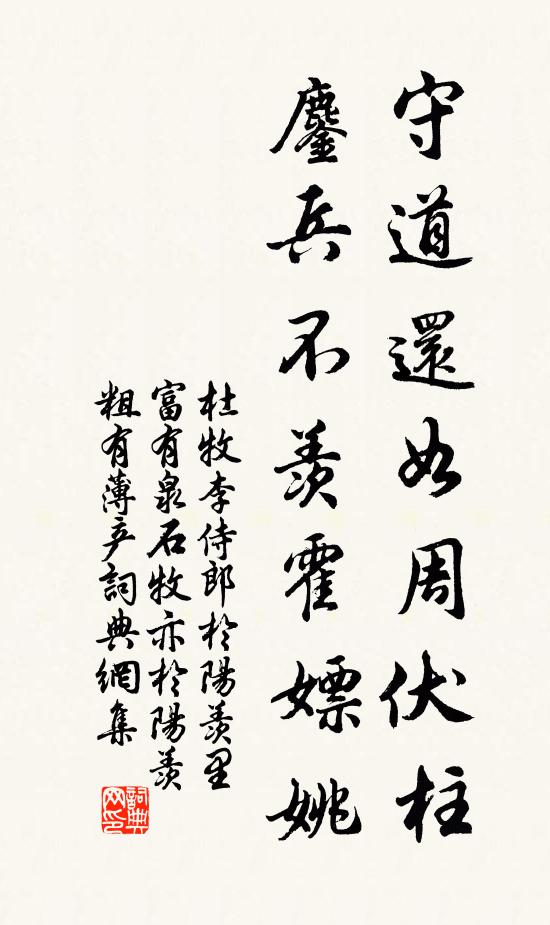 守道還如周伏柱
鏖兵不羨霍嫖姚
杜牧李侍郎於陽羨里
富有泉石牧亦於陽羨
粗有薄产詞典網集
詞典
网印